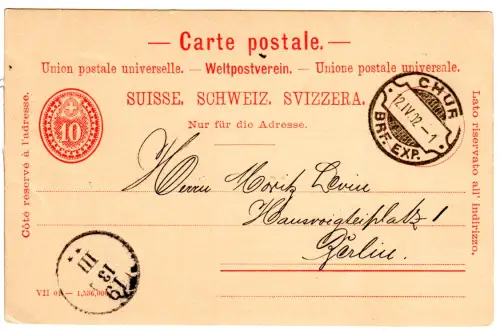 — Carte postale. —
Union postale universelle. — Weltpostverein. — Unione postale universale.
SUISSE. SCHWEIZ. SVIZZERA.
Nur für die Adresse.
Côté réservé à l'adresse.
10
CHUR
12.IV.02.-7
BRF. EXP.
Lato riservato all' indirizzo.
Herrn Moritz Levin
Hausvoigteiplatz 1
Berlin.
III
13
VII 01 — 1,506,000